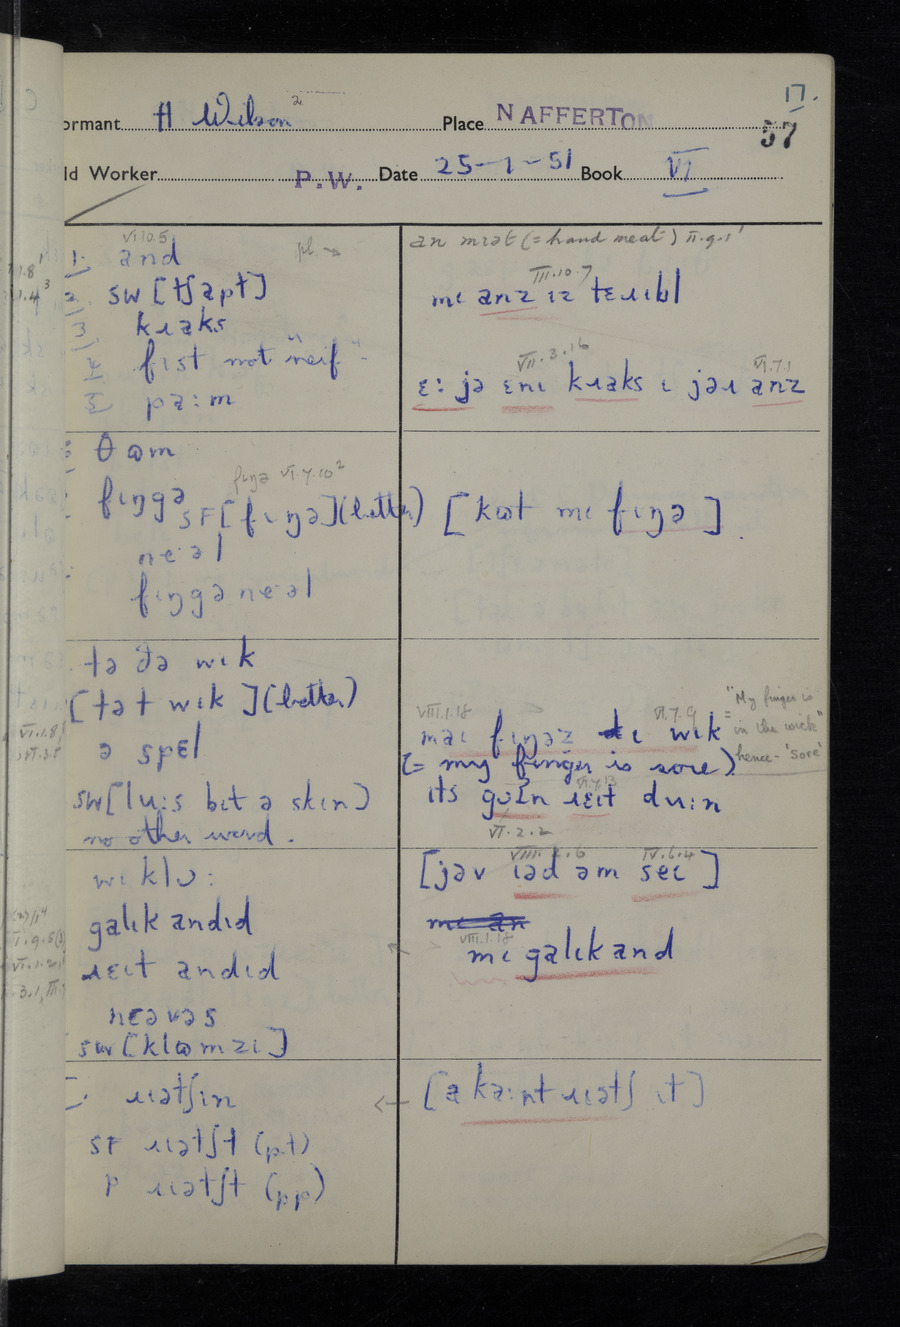 17.
ormant H Wilson² Place NAFFERTON 57
ld Worker P.W. Date 25-1-51 Book VI
VI.10.5
1. and pl →
2. SW [tʃapt]
3 kɹaks
4 fɪst not "neif"
5 pa:m
an mɪət (= hand meat) II.9.1
III.10.7
mɪ anz ɪz tɛɹɪbl
VII.3.16 VI.7.1
ɛ: jə ɛnɪ kɹaks ɪ jəɹ anz
θɷm
fɪŋə VI.7.10²
fɪŋgə SF [fɪŋə] (better)
neəl
fɪŋgəneəl
[kɷt mɪ fɪŋə]
tə ðə wɪk
[tət wɪk] (better)
ə spɛl
SW [lu:s bɪt ə skɪn]
no other word.
VIII.1.18 VI.7.9
maɪ fɪŋəz ɪ wɪk
(= my finger is sore)
"My finger is
= in the wick"
hence - 'sore'
VI.7.13
ɪts gʊɪn ɹɛɪt du:n
VI.2.2
wɪklʊ:
galɪkandɪd
ɹɛɪt andɪd
nɛəvəs
SW [klɷmzɪ]
VIII.2.6 IV.6.4
[jəv ɪəd əm seɪ]
mɪ an
VIII.1.18
mɪ galɪkand
ɹɪətʃɪn
SF ɹɪətʃt (pt)
P ɹɪətʃt (pp)
← [a ka:nt ɹɪətʃ ɪt]